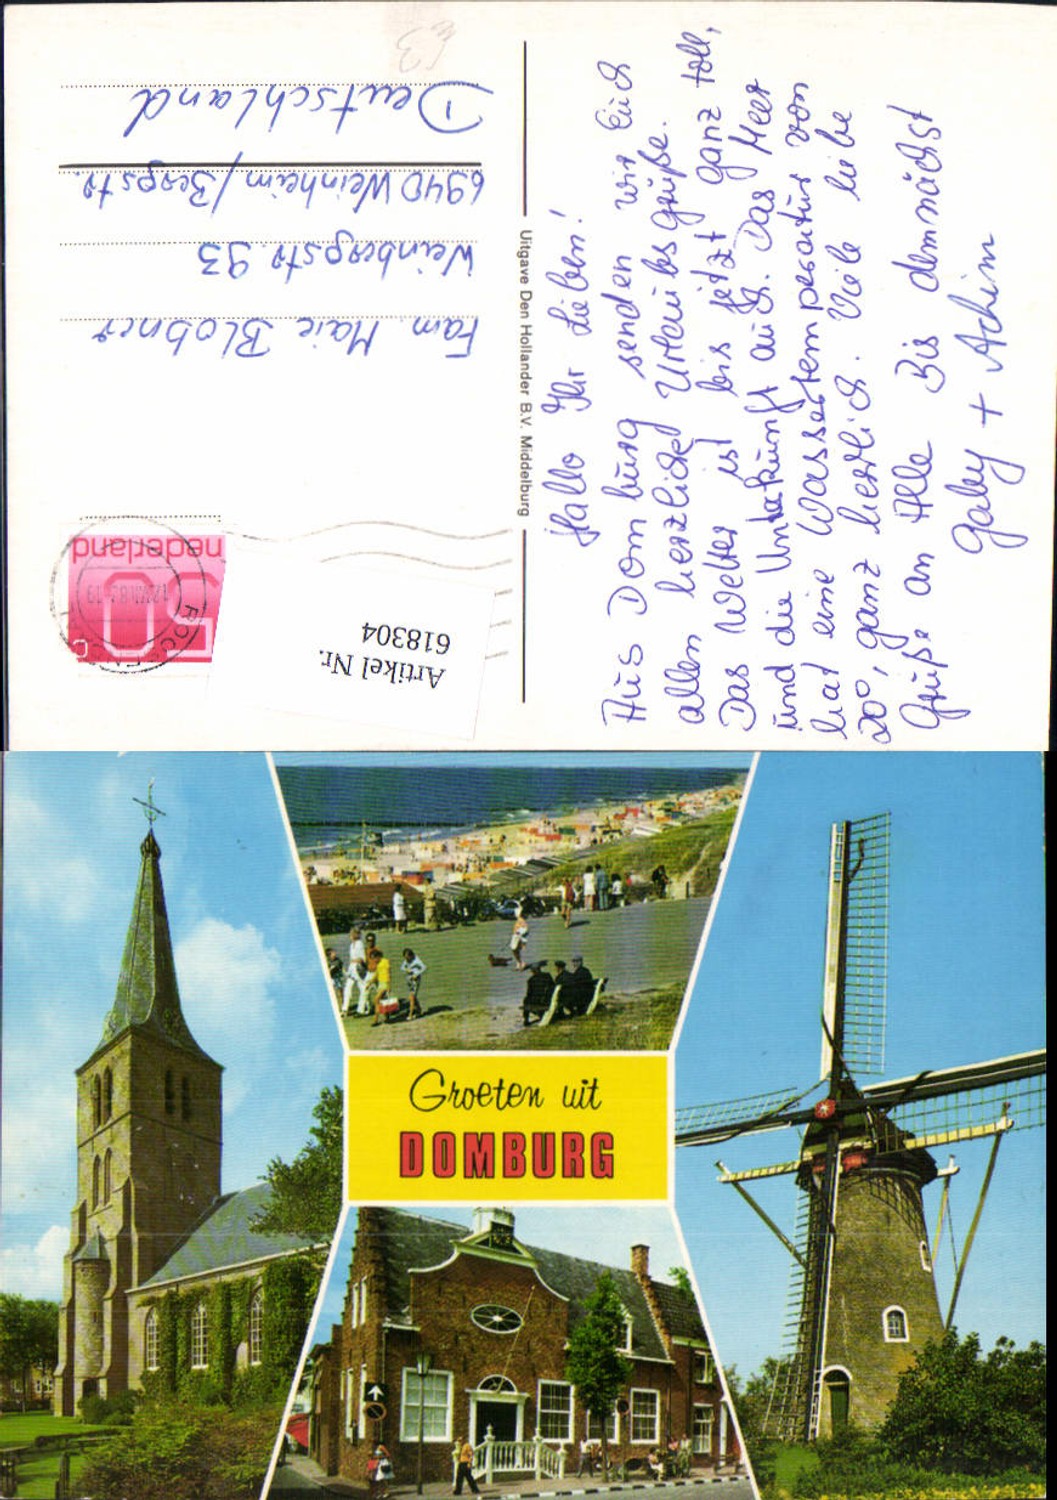 Hallo Ihr Lieben!
Aus Domburg senden wir Euch
allen herzliche Urlaubsgrüße.
Das Wetter ist bis jetzt ganz toll,
und die Unterkunft auch. Das Meer
hat eine Wassertemperatur von
20°, ganz herrlich. Viele liebe
Grüße an Alle Bis demnächst
Gaby + Achim
Uitgave Den Hollander B.V. Middelburg
Fam. Maie Blobner
Weinbergstr. 93
6940 Weinheim/Bergstr.
Deutschland
€3
nederland
50
c
Artikel Nr.
618304
Groeten uit
DOMBURG